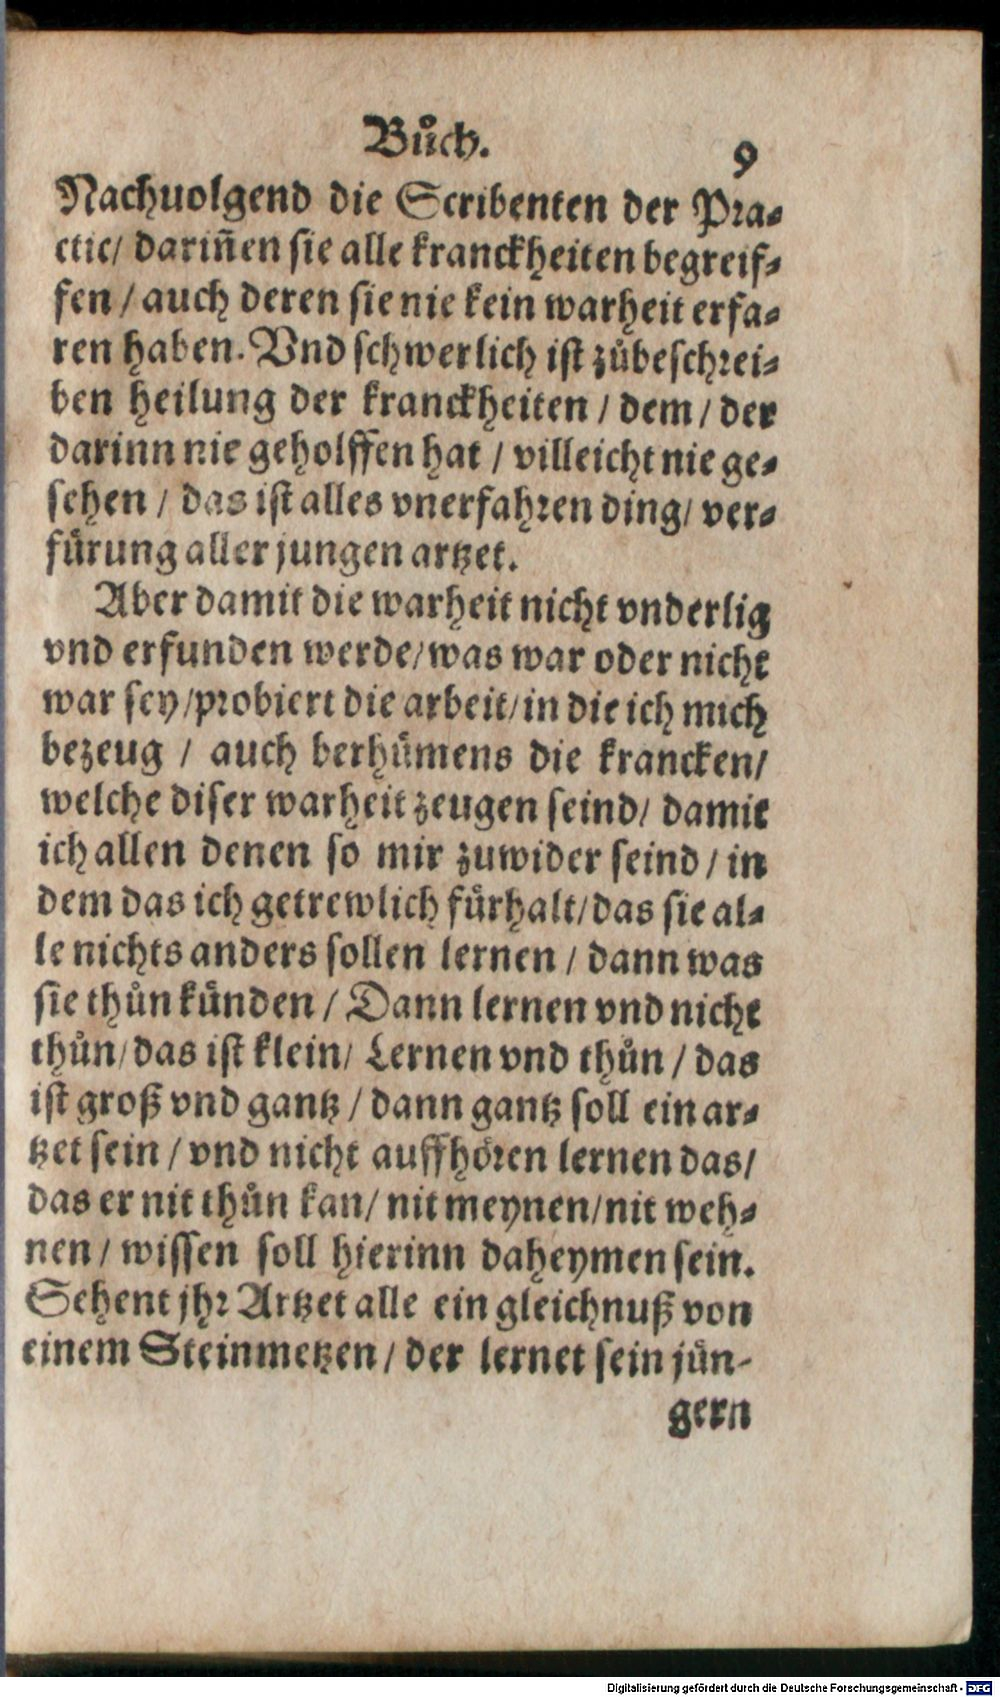 Bůch.
9
Nachuolgend die Scribenten der Pra⸗
ctic/ dariñen sie alle kranckheiten begreif⸗
fen / auch deren sie nie kein warheit erfa⸗
ren haben. Vnd schwerlich ist zůbeschrei⸗
ben heilung der kranckheiten / dem / der
darinn nie geholffen hat / villeicht nie ge⸗
sehen / das ist alles vnerfahren ding/ ver⸗
fürung aller jungen artzet.
Aber damit die warheit nicht vnderlig
vnd erfunden werde/ was war oder nicht
war sey/ probiert die arbeit/ in die ich mich
bezeug / auch berhümens die krancken/
welche diser warheit zeugen seind/ damit
ich allen denen so mir zuwider seind / in
dem das ich getrewlich fürhalt/ das sie al⸗
le nichts anders sollen lernen / dann was
sie thůn künden / Dann lernen vnd nicht
thůn/ das ist klein/ Lernen vnd thůn / das
ist groß vnd gantz / dann gantz soll ein ar⸗
tzet sein / vnd nicht auffhören lernen das/
das er nit thůn kan/ nit meynen/ nit weh⸗
nen / wissen soll hierinn daheymen sein.
Sehent jhr Artzet alle ein gleichnuß von
einem Steinmetzen / der lernet sein jün-
gern
Digitalisierung gefördert durch die Deutsche Forschungsgemeinschaft - DFG